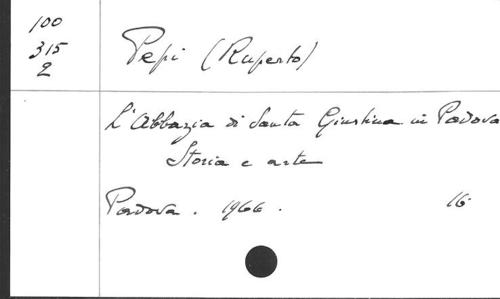 100
315
2
Pepi (Ruperto)
L'Abbazia di Santa Giustina in Padova
Storia e arte
Padova. 1966.
16.